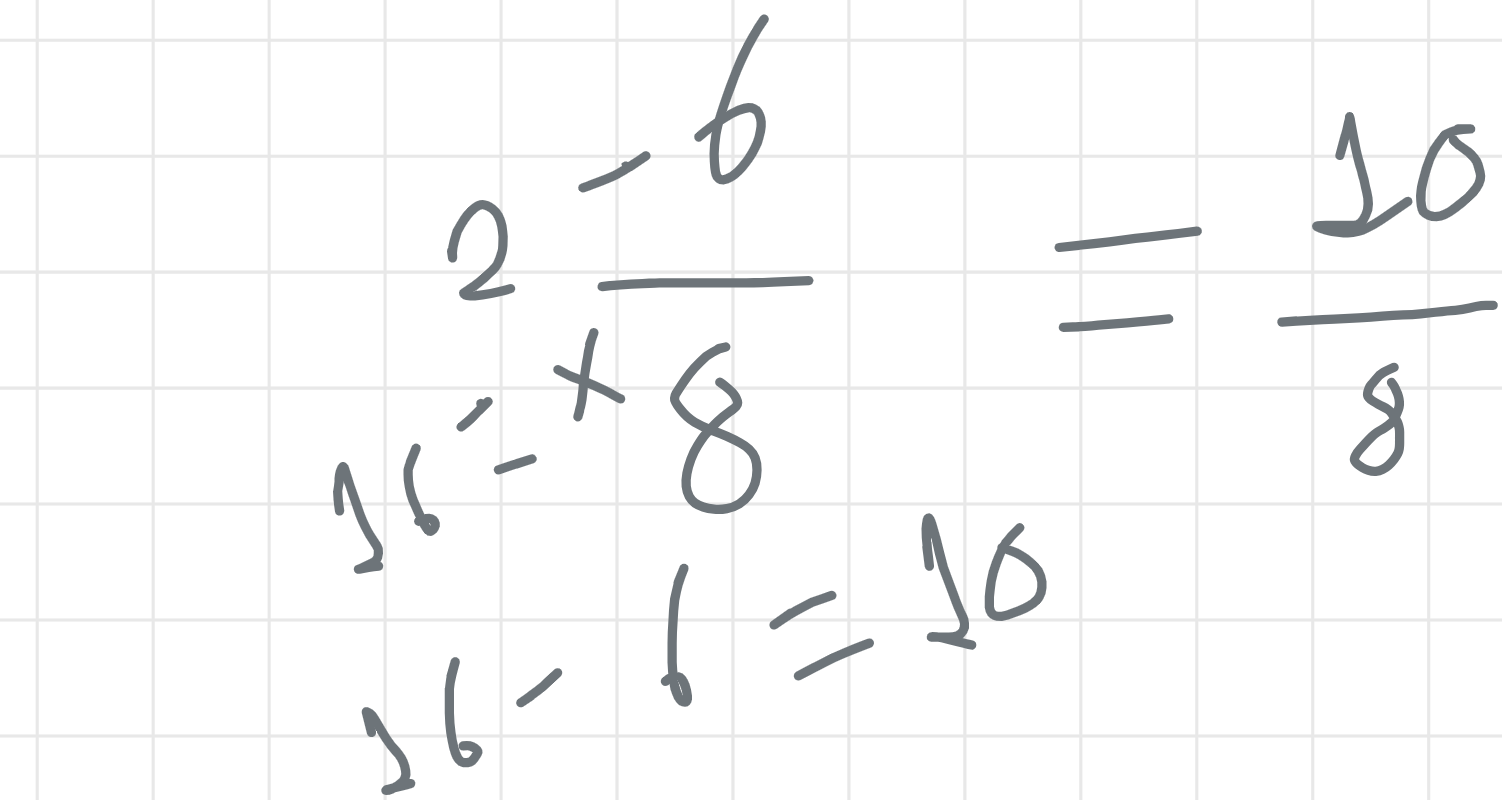 2 - 6 / 8 = 10 / 8
×
16 =
16 - 6 = 10